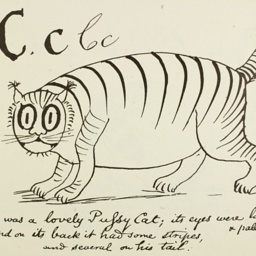 C. c C c
was a lovely Pufsy Cat; its eyes were
and on its back it had some stripes,
and several on his tail.